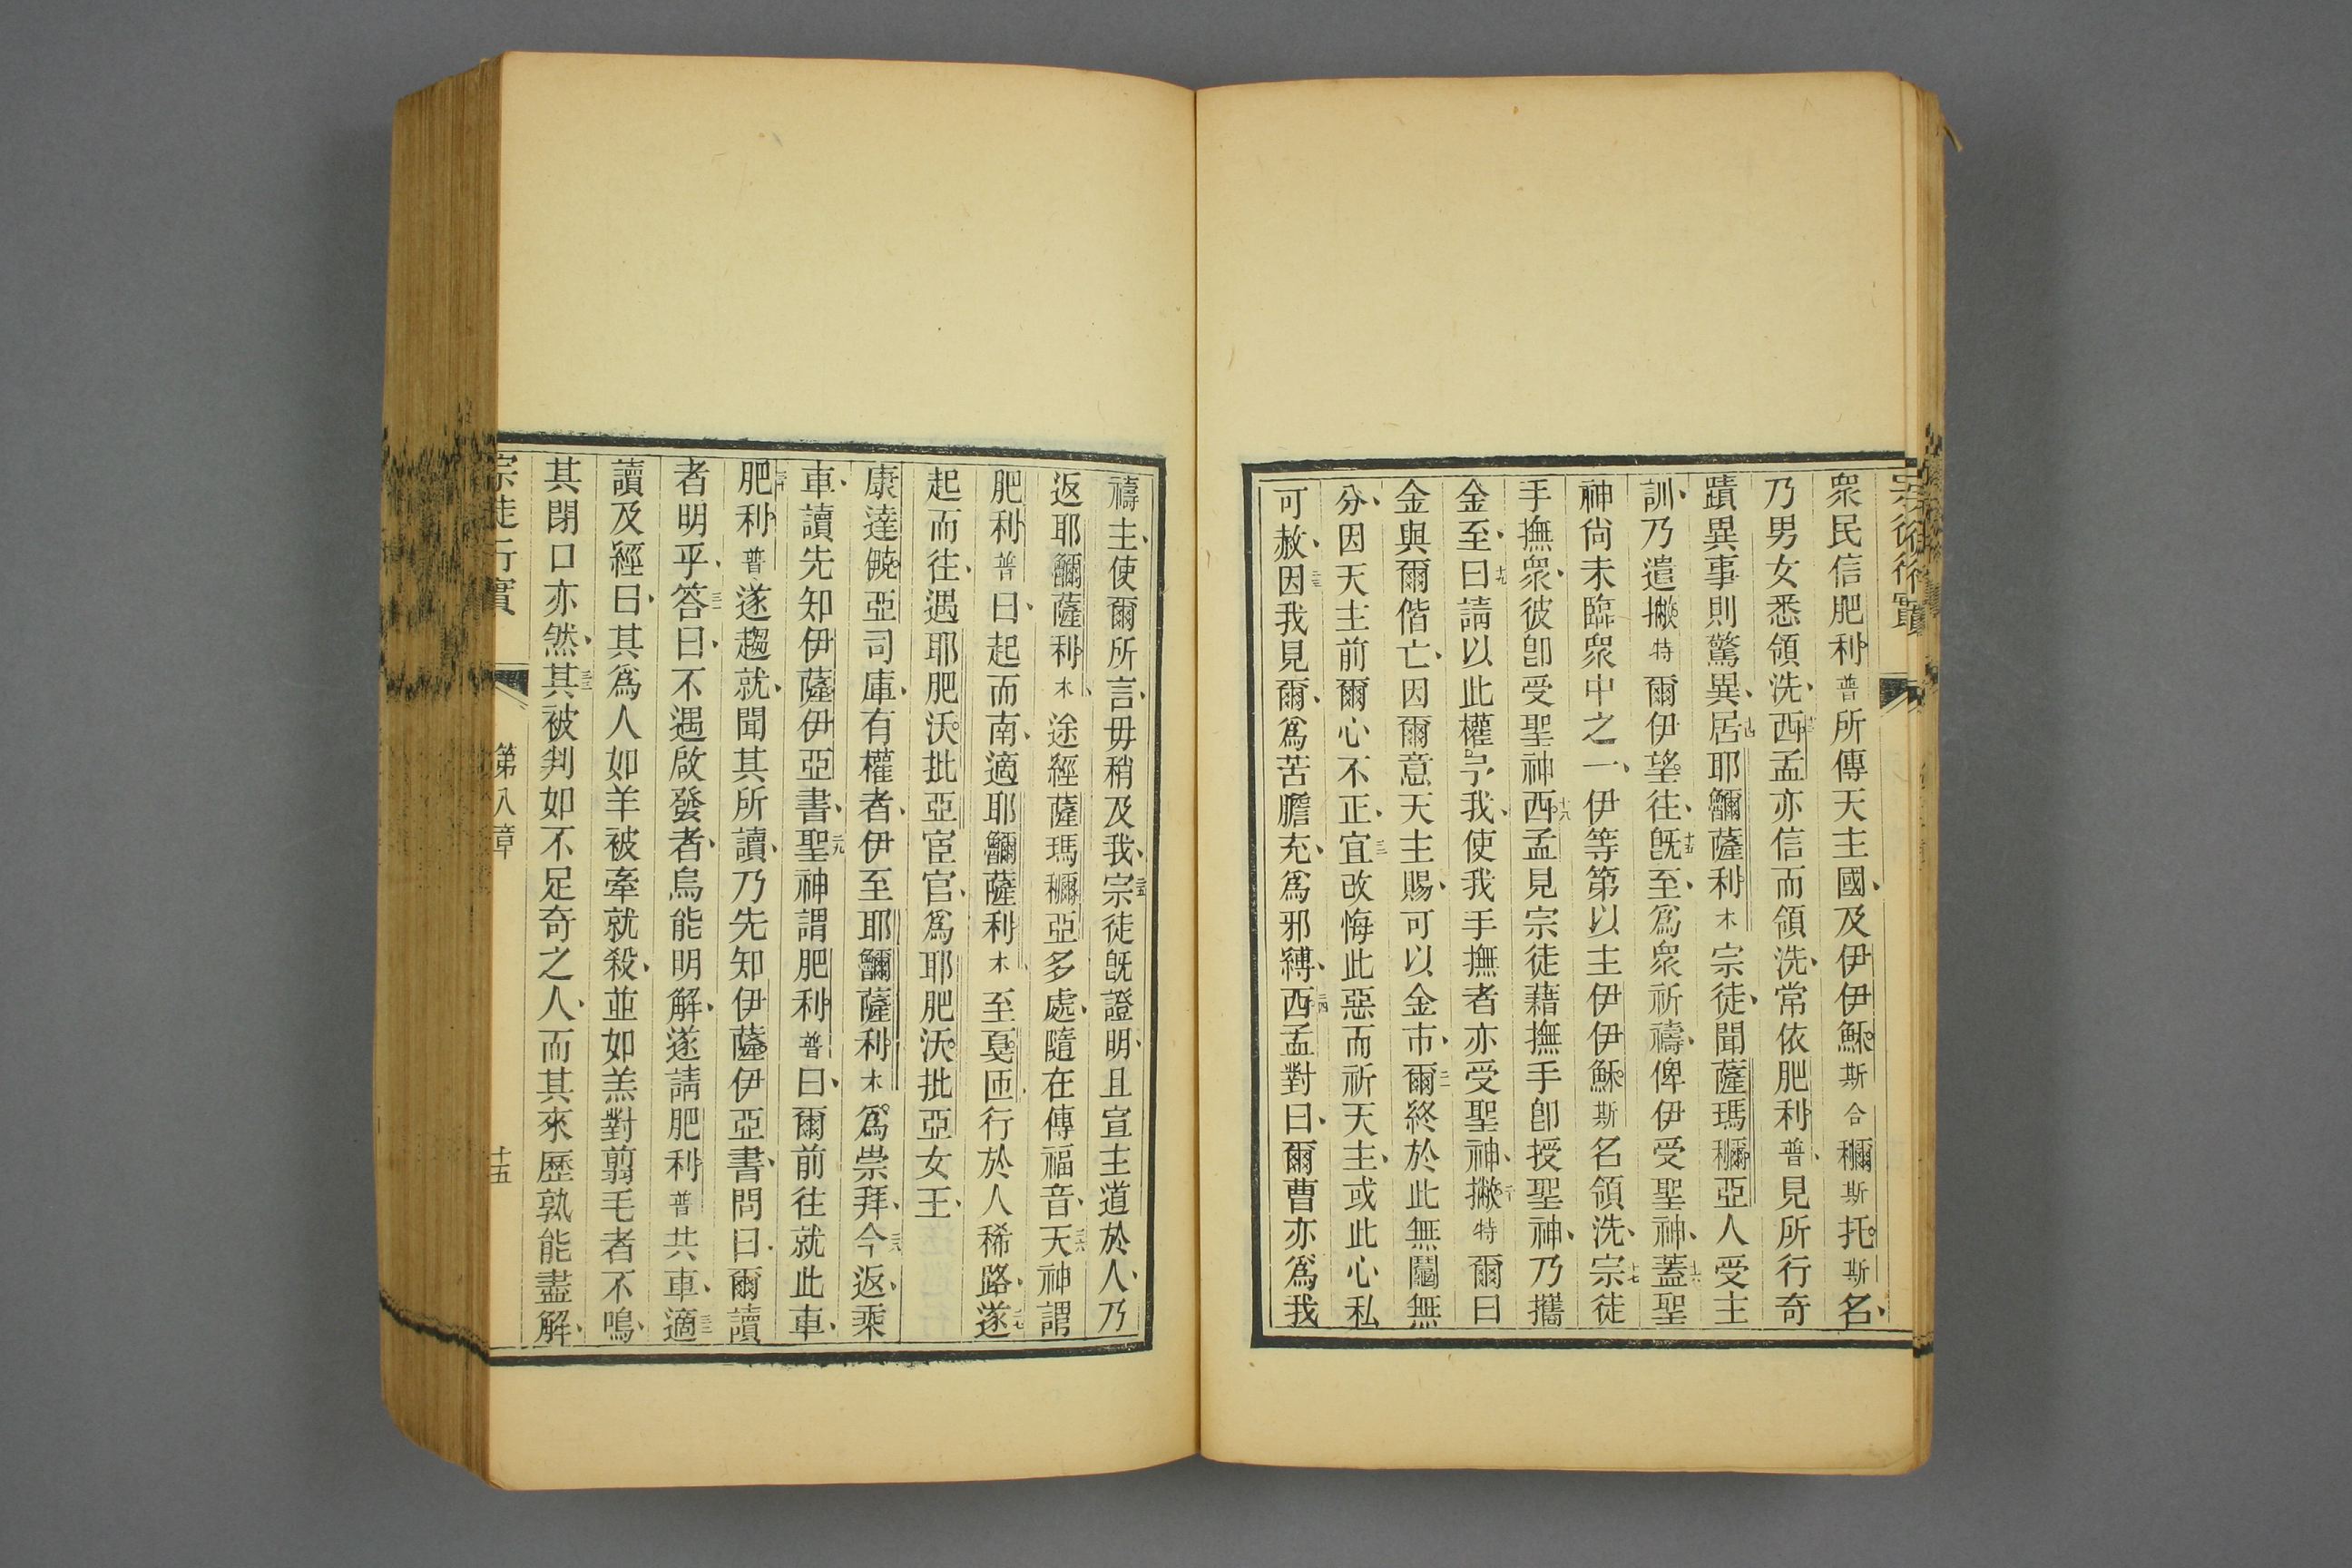 衆民信肥利普所傳天主國、及伊伊穌斯合穪斯托斯名、
乃男女悉領洗、十三西孟亦信而領洗、常依肥利普、見所行奇
蹟異事則驚異、十四居耶𬺈薩利木宗徒、聞薩瑪穪亞人受主
訓、乃遣撇特爾伊望往、十五旣至、爲衆祈禱、俾伊受聖神、十六蓋聖
神尙未臨衆中之一、伊等第以主伊伊穌斯名領洗、十七宗徒
手撫衆、彼卽受聖神、十八西孟見宗徒藉撫手卽授聖神、乃攜
金至、十九曰請以此權予我、使我手撫者亦受聖神、二十撇特爾曰
金與爾偕亡、因爾意天主賜、可以金市、二一爾終於此無鬮無
分、因天主前爾心不正、二二宜改悔此惡而祈天主、或此心私
可赦、二三因我見爾、爲苦膽充、爲邪縛、二四西孟對曰、爾曹亦爲我
禱主、使爾所言、毋稍及我、二五宗徒旣證明、且宣主道於人、乃
返耶𬺈薩利木、途經薩瑪穪亞多處、隨在傳福音、二六天神謂
肥利普曰、起而南、適耶𬺈薩利木、至戛匝、行於人稀路、二七遂
起而往、遇耶肥沃批亞宦官、爲耶肥沃批亞女王、
康達饒亞司庫、有權者、伊至耶𬺈薩利木爲崇拜、二八今返、乘
車、讀先知伊薩伊亞書、二九聖神謂肥利普曰、爾前往就此車、
三十肥利普遂趨就、聞其所讀、乃先知伊薩伊亞書、問曰、爾讀
者明乎、三一答曰、不遇啟發者、烏能明解、遂請肥利普共車、三二適
讀及經曰、其爲人如羊被牽就殺、並如羔對翦毛者不鳴、
其閉口亦然、三三其被判如不足奇之人、而其來歷孰能盡解、
宗徒行實
第八章
十五